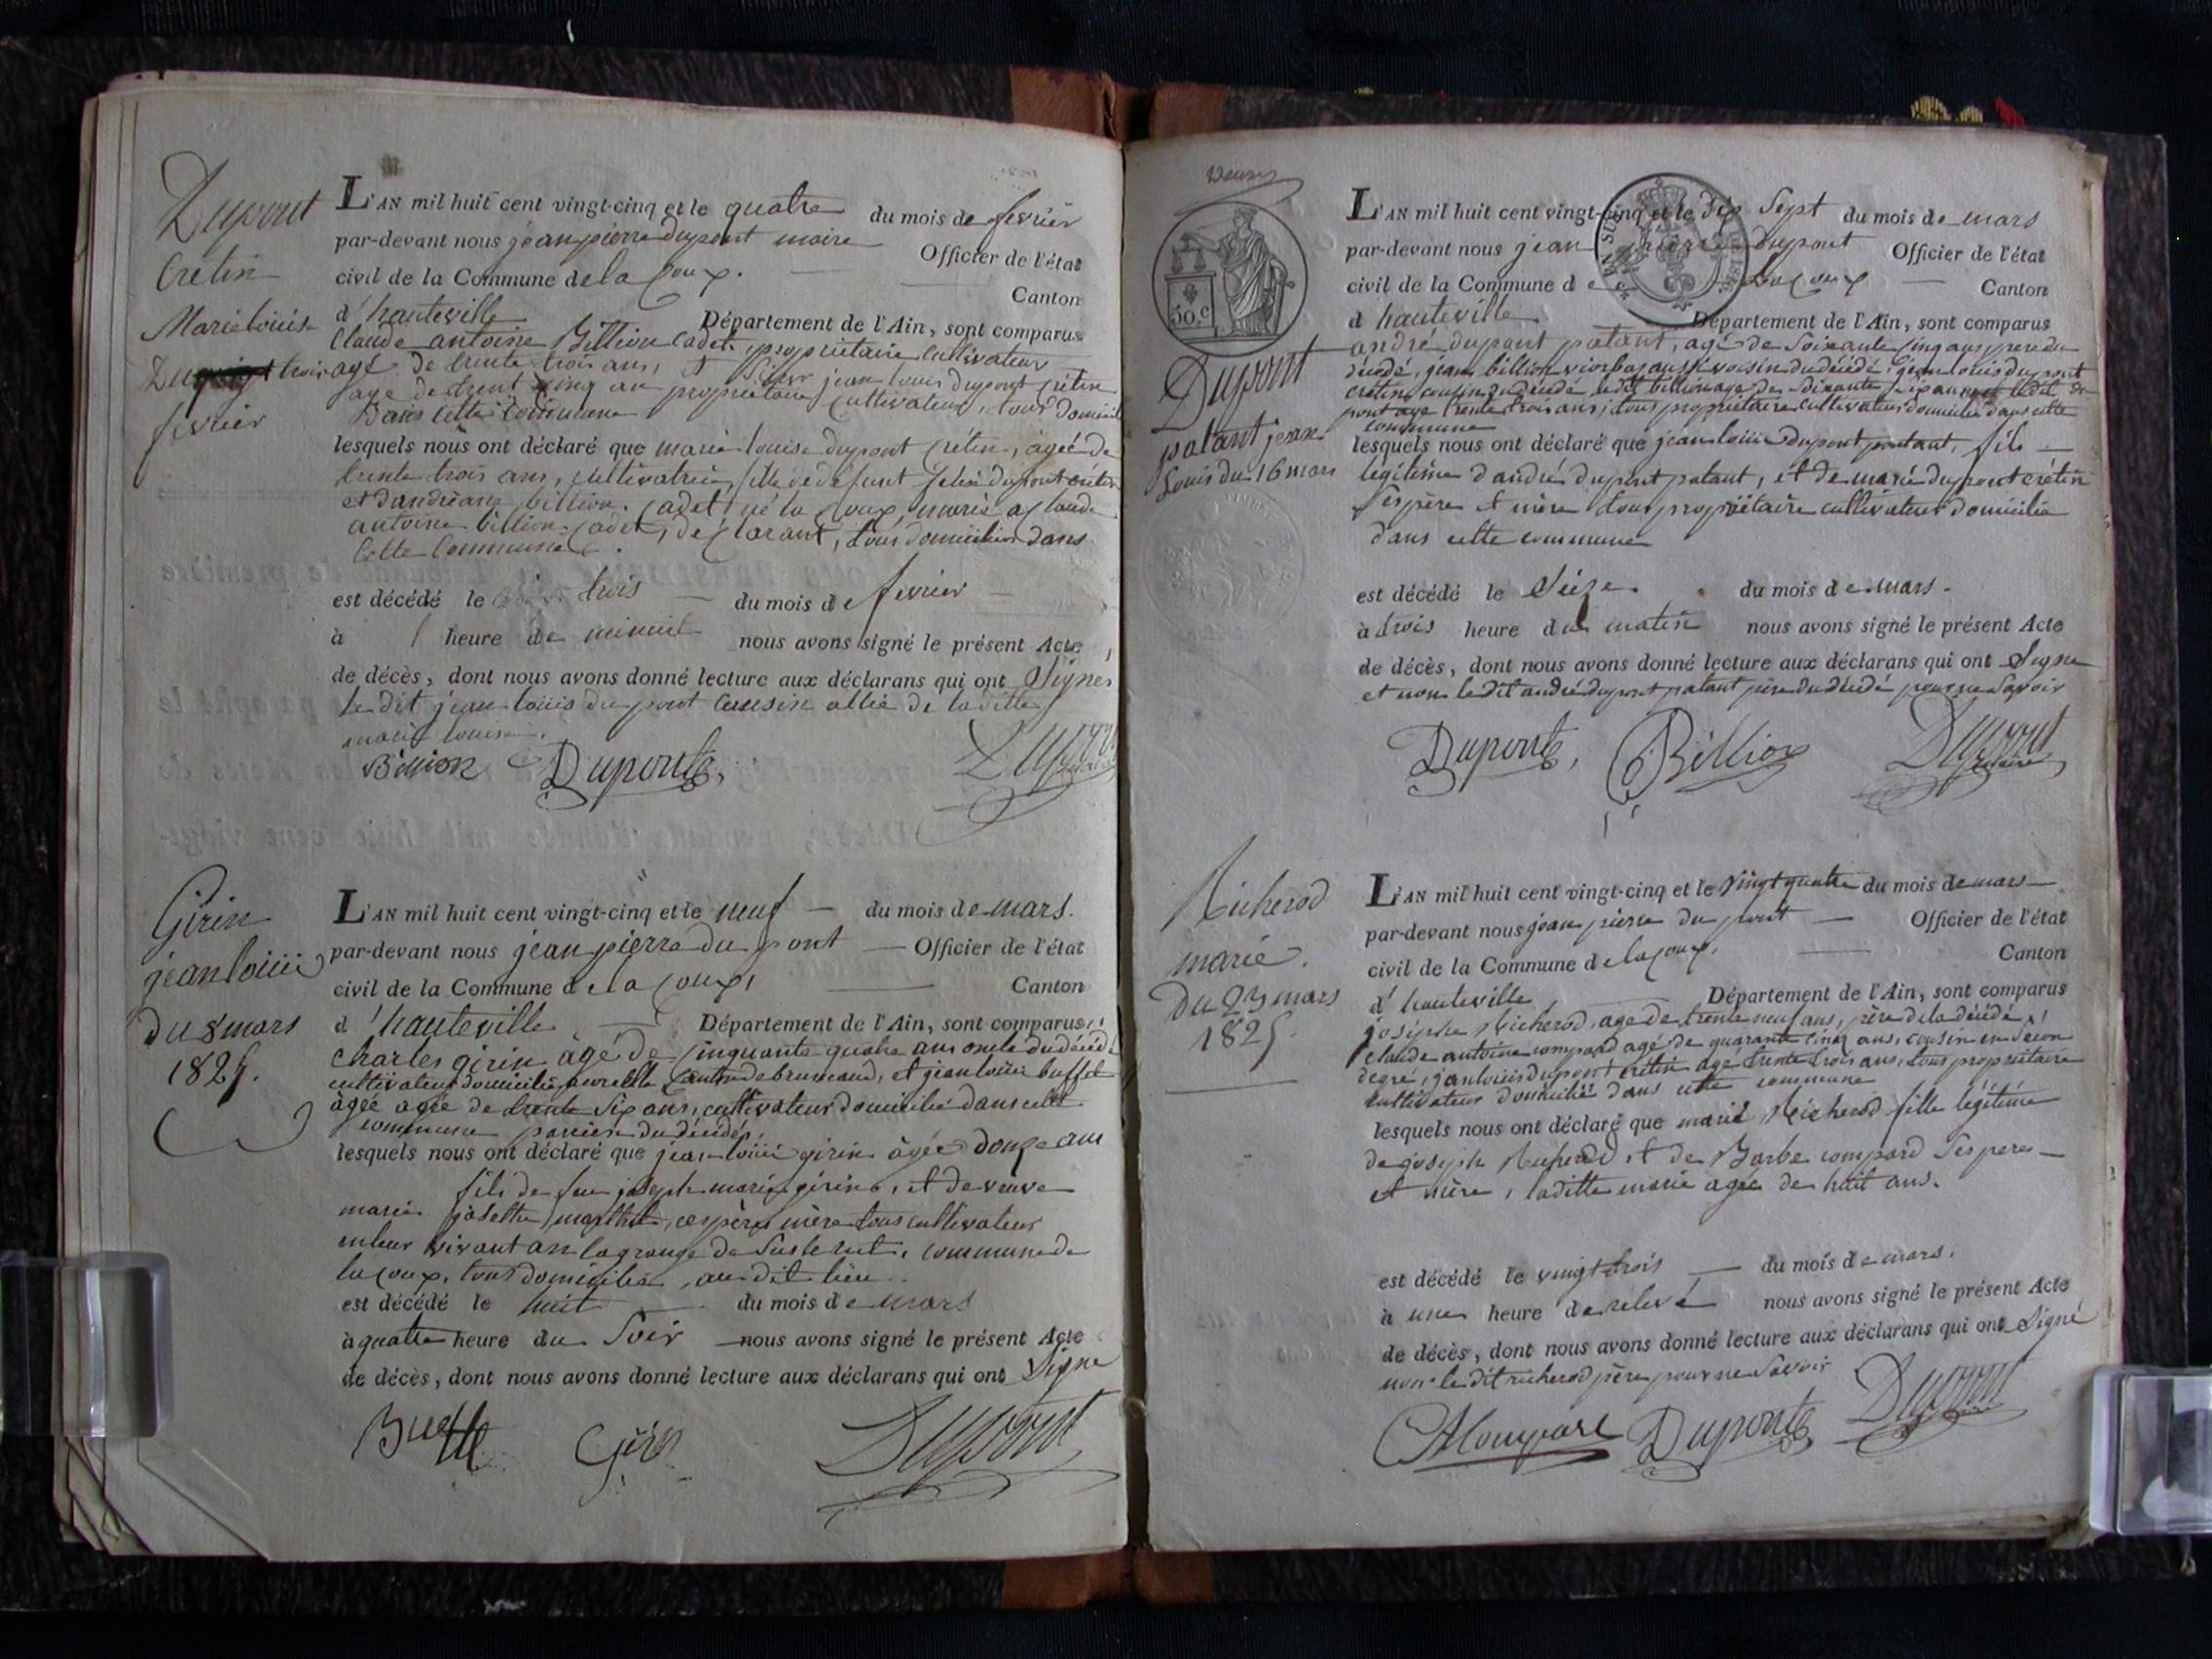 Dupont
Cretin
Marie louise
Du trois
fevrier
L'AN mil huit cent vingt-cinq et le quatre du mois de fevrier
par-devant nous jean pierre dupont maire Officier de l'état
civil de la Commune de la Coux. Canton
d'hauteville Département de l'Ain, sont comparus
Claude antoine Billion Cadet, propriétaire Cultivateur
agé de trente trois ans, et jean louis dupont crétin
agé de trent cinq an propriétaire Cultivateur, tous domicil
Dans Cette Commune
lesquels nous ont déclaré que marie louise dupont crétin, agée de
trente trois ans, cultivatrice, fille de defunt dupont crétin
et d'andréanne billion Cadet, né la Coux, marié a Claude
antoine billion Cadet, déclarant, tous domicilier dans
Cette Commune.
est décédé le trois du mois de fevrier
à 1 heure de minuit nous avons signé le présent Acte
de décès, dont nous avons donné lecture aux déclarans qui ont Signer
le dit jean louis dupont Causin allié de laditte
marie louise.
Billion Duponte, Dupont
Girin
jean louis
du 8 mars
1825.
L'AN mil huit cent vingt-cinq et le neuf du mois de mars.
par-devant nous jean pierre du pont Officier de l'état
civil de la Commune de la Coux, Canton
d'hauteville Département de l'Ain, sont comparus
Charles girin âgé de Cinquante quatre ans oncle du décédé
cultivateur domicilié Canton de brenaud, et jean louis buffet
âgée de trente Six ans, cultivateur domicilié dans cette
commune du décédé.
lesquels nous ont déclaré que jean louis girin âgée donze ans
fils de feu joseph marie girin, et de veuve
marie josette, ces père mère tous cultivateur
en leur vivant a la grange de commune de
la Coux, tous domicilié au dit lieu.
est décédé le huit du mois de mars
à quatre heure du Soir nous avons signé le présent Acte
de décès, dont nous avons donné lecture aux déclarans qui ont Signe
Buffet Girin Dupont
50.c
Dupont
patant jean
Louis du 16 mars
L'AN mil huit cent vingt-cinq et le dix Sept du mois de mars
par-devant nous jean pierre dupont Officier de l'état
civil de la Commune de la Coux Canton
d'hauteville Département de l'Ain, sont comparus
andré dupont patant, agé de Soixante Cinq ans, pere du
décédé, jean billion voisin du décédé, jean louis dupont
crétin cousin du décédé, le dit billion age de Soixante ans et le dit du
pont age trente trois ans, tous propriétaire cultivateur domicilié dans cette
commune
lesquels nous ont déclaré que jean louis dupont patant, fils
légitime d'andré dupont patant, et de marie dupont crétin
ses père et mère tous propriétaire cultivateur domicilié
dans cette commune
est décédé le Seize. du mois de mars.
à trois heure du matin nous avons signé le présent Acte
de décès, dont nous avons donné lecture aux déclarans qui ont Signe
et non le dit andré dupont patant père du décédé pour ne Savoir
Duponte, Billion Dupont maire
Richerod
marie.
Du 23 mars
1825.
L'AN mil huit cent vingt-cinq et le vingt quatre du mois de mars
par-devant nous jean pierre du pont Officier de l'état
civil de la Commune de la Coux, Canton
d'hauteville Département de l'Ain, sont comparus
joseph Richerod, age de trente neuf ans, père de la décédé,
Claude antoine compard agé de quarante cinq ans, cousin en Secon
degré, jean louis dupont crétin age trente trois ans, tous propriétaire
cultivateur domicilié dans cette commune
lesquels nous ont déclaré que marie Richerod fille légitime
de joseph Richerod et de Barbe compard Ses pere
et mère, laditte marie agée de huit ans.
est décédé le vingt trois du mois de mars.
à une heure de relevé nous avons signé le présent Acte
de décès, dont nous avons donné lecture aux déclarans qui ont Signé
non le dit richerod père pour ne Savoir
Compard Duponte Dupont